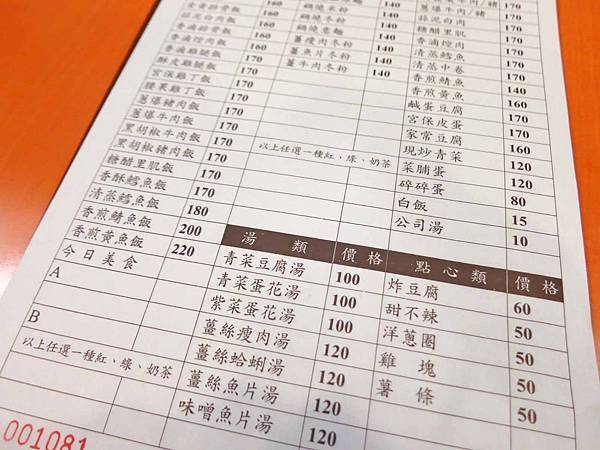 蒜泥白肉飯 160
香滷排骨飯 160
香滷雞腿飯 160
酥皮雞腿飯 170
宮保雞丁飯 170
腰果雞丁飯 170
蔥爆豬肉飯 170
蔥爆牛肉飯 170
黑胡椒牛肉飯 170
黑胡椒豬肉飯 170
糖醋里肌飯 170
香酥鱈魚飯 170
清蒸鱈魚飯 180
香煎鯖魚飯 200
香煎黃魚飯 220
今日美食
A
B
以上任選一種紅、綠、奶茶
001081
鍋燒米粉 140
鍋燒意麵 140
薑瘦肉冬粉 140
薑魚片冬粉 140
薑牛肉冬粉 140
以上任選一種紅、綠、奶茶
湯類 價格
青菜豆腐湯 100
青菜蛋花湯 100
紫菜蛋花湯 100
薑絲瘦肉湯 120
薑絲蛤蜊湯 120
薑絲魚片湯 120
味噌魚片湯 120
蔥爆牛肉/豬 170
蒜泥白肉 170
糖醋里肌 170
香滷焢肉 170
清蒸鱈魚 170
清蒸中卷 170
香煎鯖魚 140
香煎黃魚 160
鹹蛋豆腐 170
宮保皮蛋 170
家常豆腐 160
現炒青菜 120
菜脯蛋 120
碎碎蛋 80
白飯 15
公司湯 10
點心類 價格
炸豆腐 60
甜不辣 50
洋蔥圈 50
雞塊 50
薯條 50